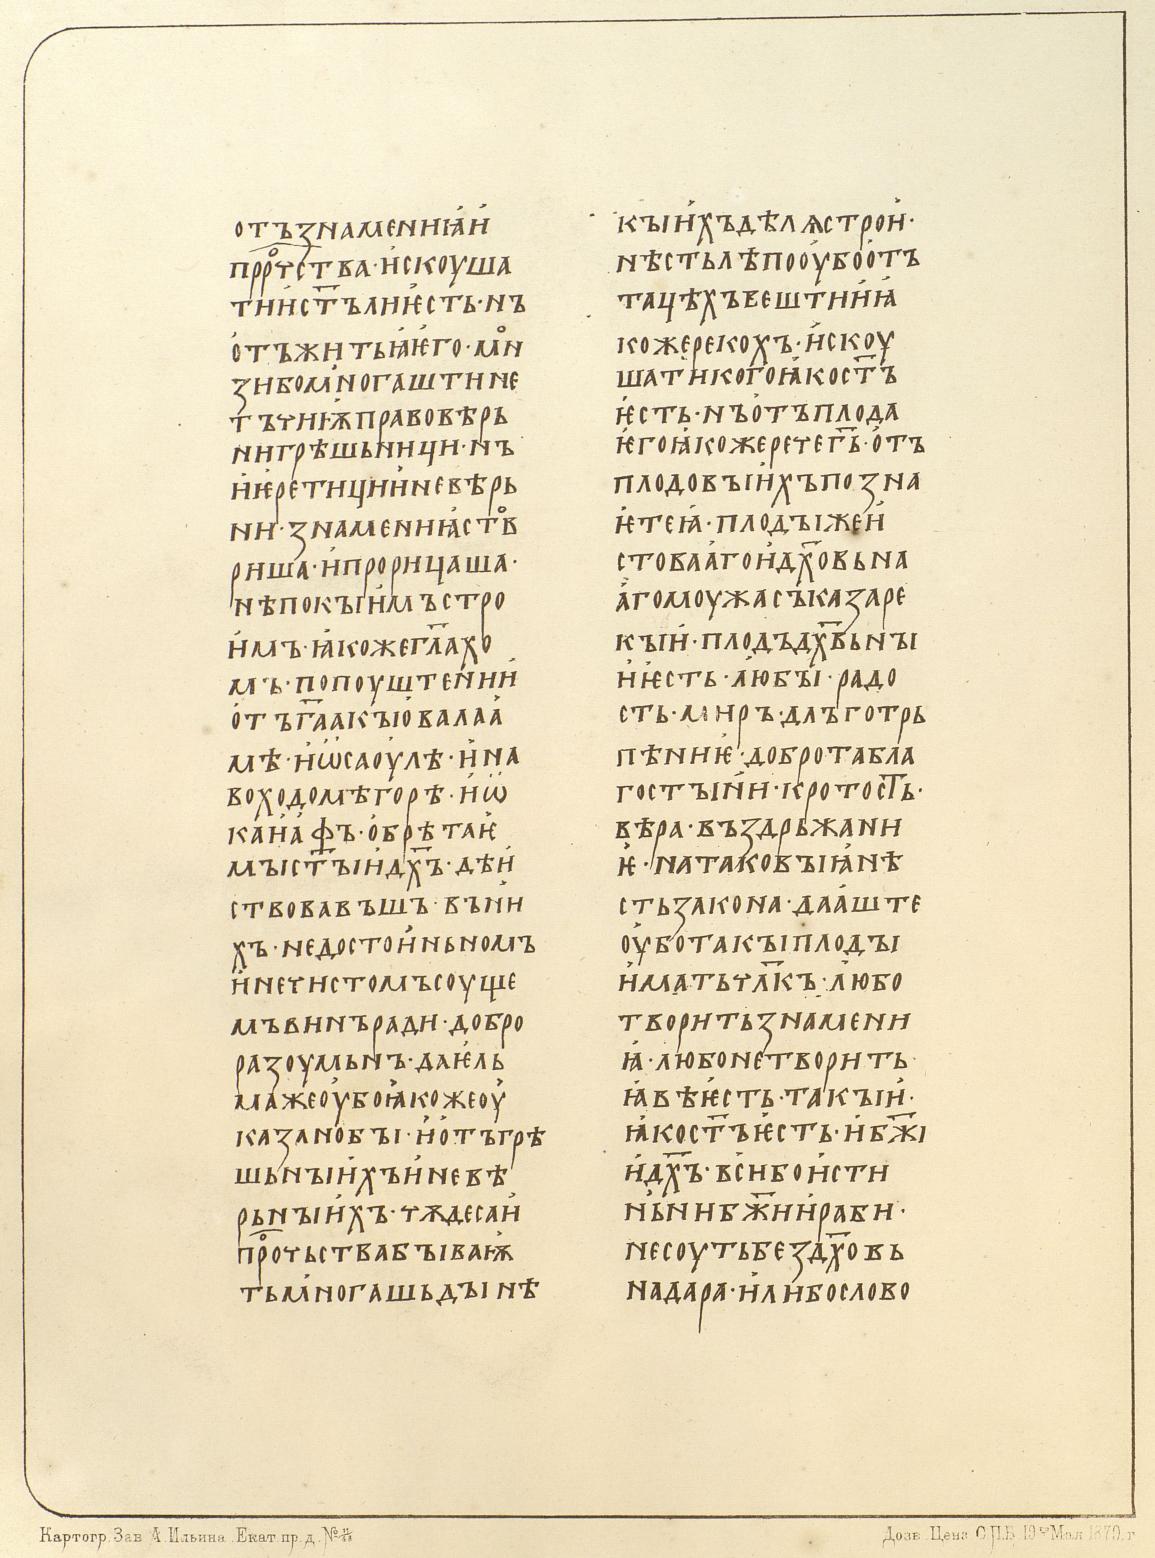 отъзнамениꙗ҅и҅
прⷪ҇рчства·и҅скоуша
тии҅ст҃ълиѥ҅сть·нъ
о҅тъжитьꙗ҅ѥ҅го·мⷩ҇о
зибом҅ногаштине
тъчиѭправовѣрь
ниigрѣшьници·нъ
и҅ѥ҅ретиции҅невѣрь
ни·знамениꙗ҅ствⷪ҇
риша·и҅прорицаша·
нѣпокꙑи҅мъстро
и҅мъ·ꙗ҅кожегл҃ахо
мъ·попоуштен҅ии҅
о҅тъг҃аакꙑо҅валаа҅
мѣ·и҅ѡ҅саоу҅лѣ·и҅на
воходомѣгорѣ·и҅ѡ҅
каи҅а҅фъ·о҅брѣтаѥ҅
мꙑст҃ꙑи҅дх҃ъ·дѣи҅
ствовавъшъ·въни҅
хъ·недостои҅ньномъ
и҅нечистомъсоуще
мъвинъради·добро
разоумьнъ·даѥ҅ль
мажеоу҅боꙗ҅кожеоу҅
казанобꙑ·и҅о҅тъгрѣ
шьнꙑи҅хъи҅невѣ
рьнꙑи҅хъ·чѫдесаи҅
прⷪ҇очьствабꙑваѭ҅
тьм҅ногашьдꙑнѣ
кꙑи҅хъдѣлѧстрои҅·
нѣстьлѣпооу҅боо҅тъ
тацѣхъвештии҅ꙗ҅
кожерекохъ·и҅скоу
шатикогоꙗ҅кост҃ъ
ѥ҅сть·нъо҅тъплода
ѥ҅гоꙗ҅кожеречег҃ь·о҅тъ
плодовꙑи҅хъпозна
ѥ҅теꙗ҅·плодꙑжеи҅
стовлаа҅гои҅дх҃овьна
а҅гомоужасъказаре
кꙑи҅·плодъдх҃вьнꙑ
и҅ѥ҅сть·л҅юбꙑ·радо
сть·миръ·длъготрь
пѣниѥ҅·добротабла
гостꙑн҅и·кротост҃ь·
вѣра·въздрьжани
ѥ҅·натаковꙑꙗ҅нѣ
стьзакона·даа҅ште
оу҅ботакꙑплодꙑ
и҅матьчл҃къ·л҅юбо
творитьзнамени
ꙗ҅·любонетворить·
ꙗ҅вѣѥ҅сть·такꙑи҅·
ꙗ҅кост҃ъѥ҅сть·и҅бж҃і
и҅дх҃ъ·вс҅ибои҅сти
ньнибж҃ии҅раби·
несоутьбездх҃овь
надара·и҅ли҅бослово
Картогр. Зав. А. Ильина. Екат. пр. д. №
Дозв. Ценз. С.П.Б. 19го Мая 1879 г.